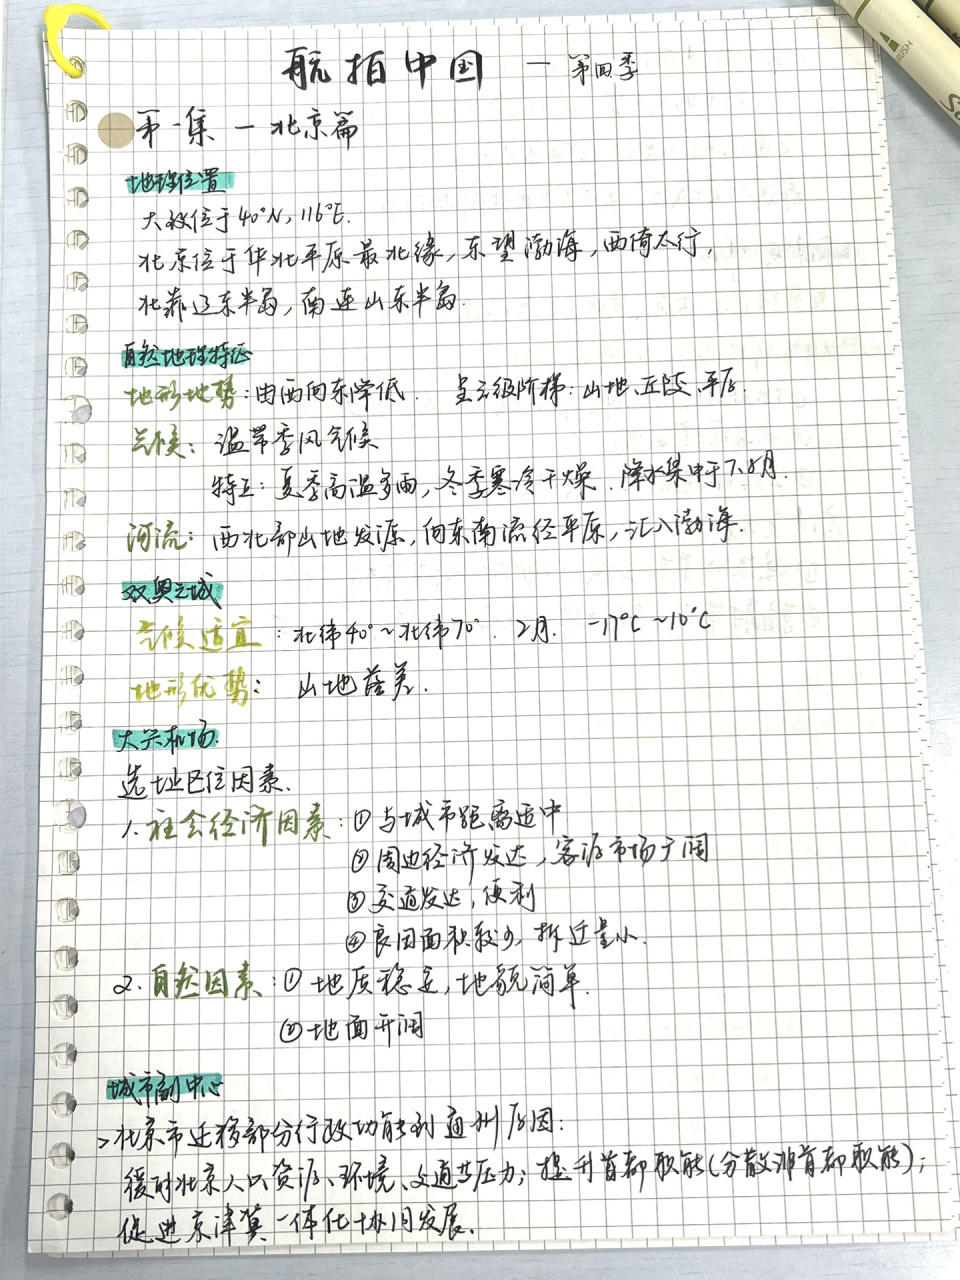 航拍中国 — 第四季
第一集 — 北京篇
地理位置
大致位于40°N, 116°E.
北京位于华北平原最北缘, 东望渤海, 西倚太行,
北靠辽东半岛, 南连山东半岛.
自然地理特征
地形地势: 由西向东降低. 呈三级阶梯: 山地、丘陵、平原.
气候: 温带季风气候
特征: 夏季高温多雨, 冬季寒冷干燥. 降水集中于7、8月.
河流: 西北部山地发源, 向东南流经平原, 汇入渤海.
双奥之城
气候适宜: 北纬40°~北纬70°. 2月. -17°C~10°C
地形优势: 山地落差.
大兴机场
选址区位因素.
1. 社会经济因素: ①与城市距离适中
②周边经济发达, 客源市场广阔
③交通发达, 便利
④良田面积较少, 拆迁量小.
2. 自然因素: ①地质稳定, 地貌简单.
②地面开阔
城市副中心
>北京市迁移部分行政功能到通州原因:
缓解北京人口、资源、环境、交通等压力; 提升首都职能(分散非首都职能);
促进京津冀一体化协同发展.